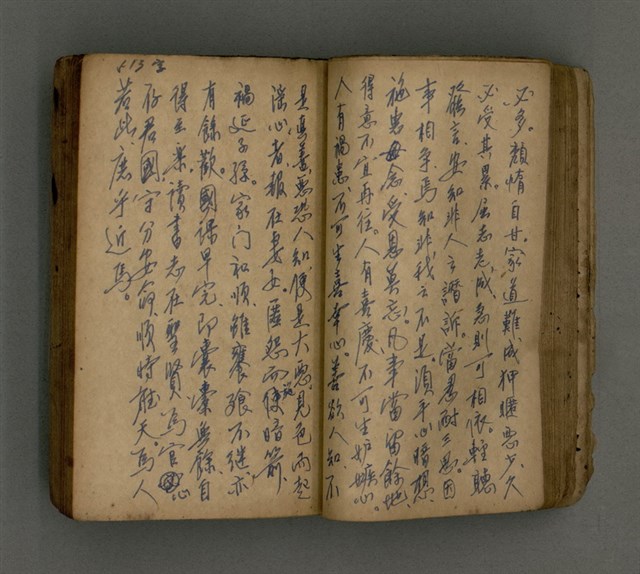 必多。頹惰自甘。家道難成。狎暱惡少。久
必受其累。屈志老成。急則可相依。輕聽
發言。安知非人之譖訴。當忍耐三思。因
事相爭。焉知非我之不是。須平心暗想。
施惠毋念。受恩莫忘。凡事當留餘地。
得意不宜再往。人有喜慶。不可生妒嫉心。
人有禍患。不可生喜幸心。善欲人知。不
是真善。惡恐人知。便是大惡。見色而起
淫心者。報在妻女。匿怨而使暗箭。
禍延子孫。家门和順。雖饔飧不继。亦
有餘歡。國課早完。即囊橐無餘。自
得至楽。读書志在聖賢。為官心
存君國。守分安命。順時聽天。為人
若此。庶乎近焉。
613字